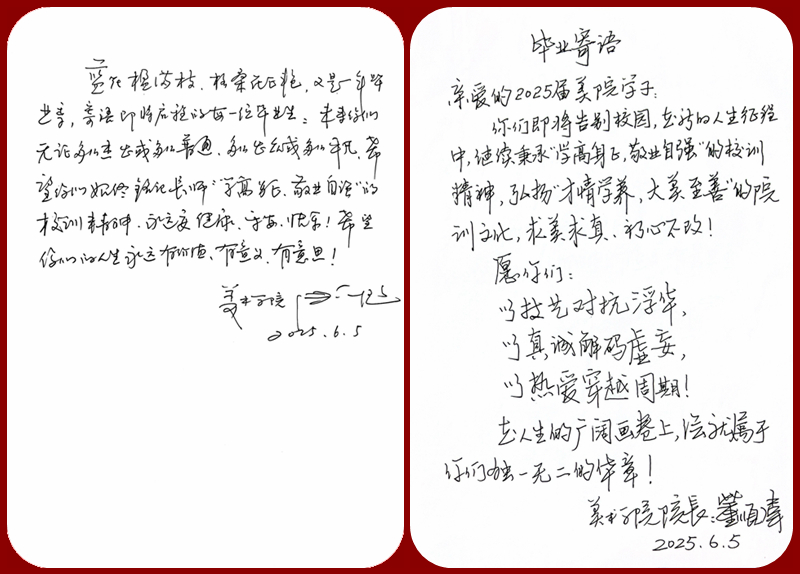 蓝花楹满枝，栀子花正艳，又是一年毕
业季，寄语即将启程的每一位毕业生：未来你们
无论多么杰出或多么普通，多么出众或多么平凡，希
望你们始终铭记长师“学高身正、敬业自强”的
校训
永远健康、平安、快乐！希望
你们的人生永远有价值、有意义、有意思！
美术学院
2025.6.5
毕业寄语
亲爱的2025届美院学子：
你们即将告别校园，在新的人生征程
中，继续秉承“学高身正，敬业自强”的校训
精神，弘扬“才情学养，大美至善”的院
训文化，求美求真、初心不改！
愿你们：
以技艺对抗浮华，
以真诚解码虚妄，
以热爱穿越周期！
在人生的广阔画卷上，绘就属于
你们独一无二的华章！
美术学院院長：
2025.6.5